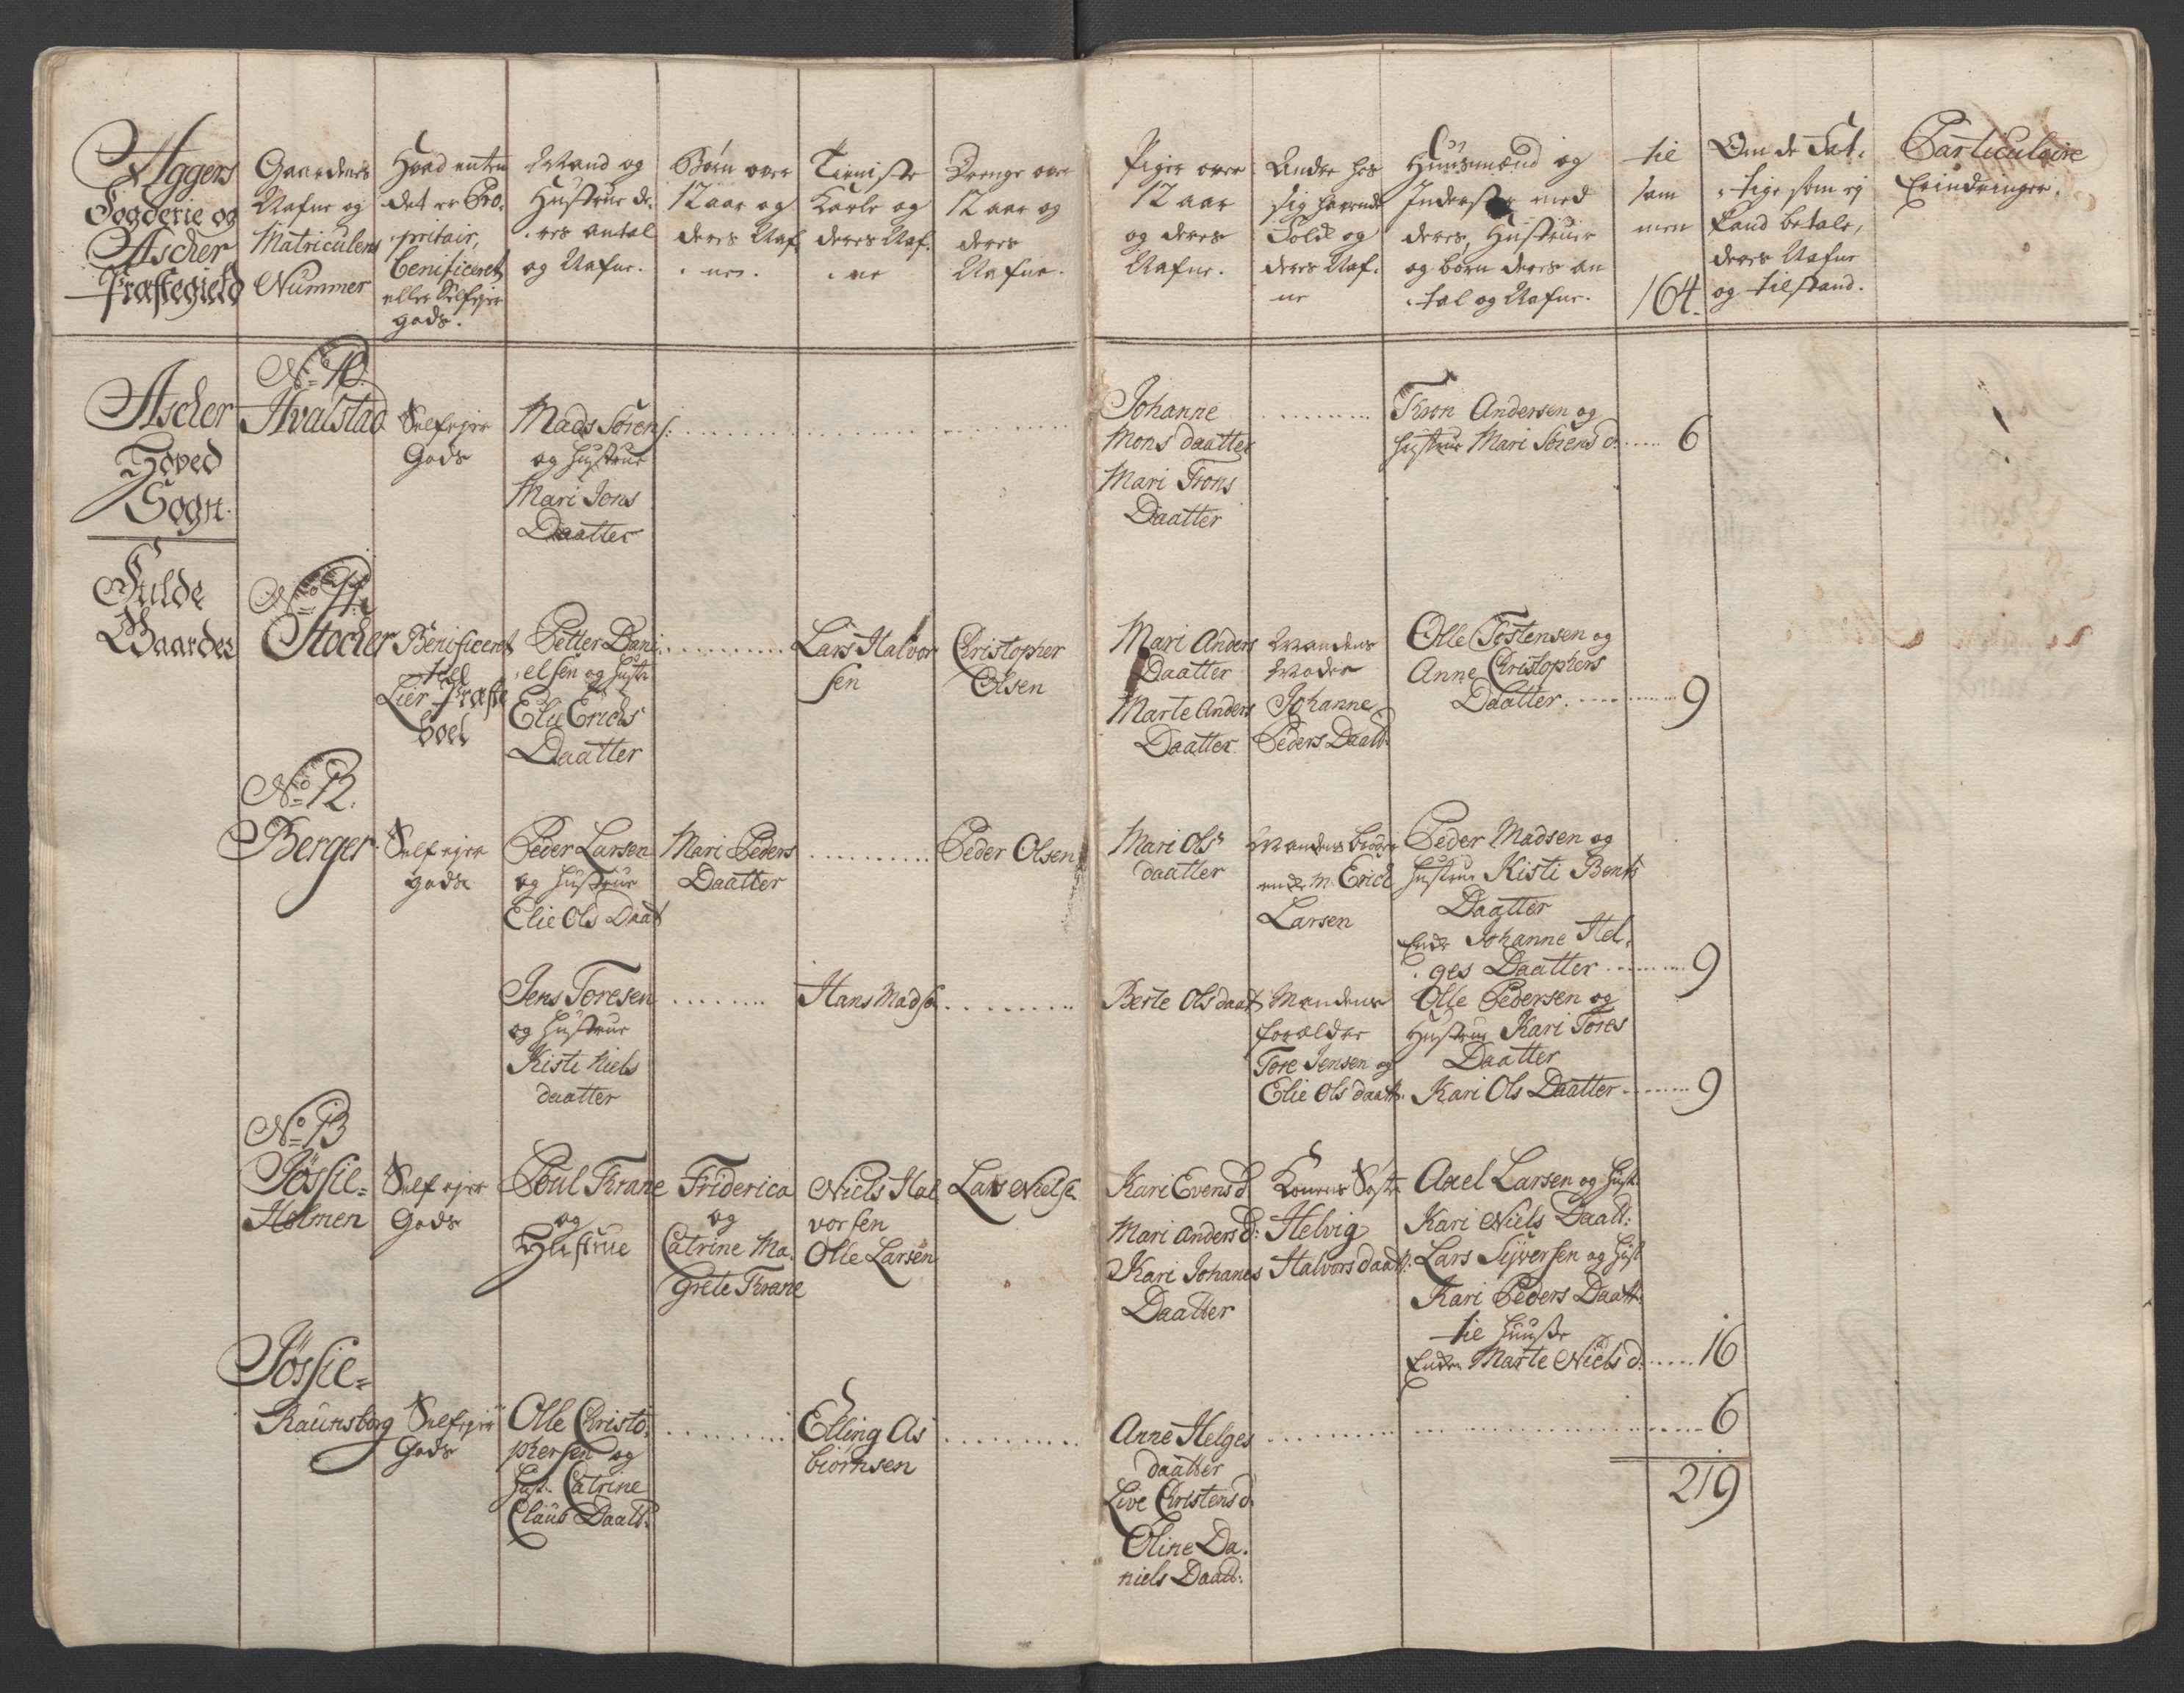 Aggers
Fogderie og
Ascher
Præstegield
Gaardens
Nafne og
Matriculens
Nummer
Hvad enten
det er Pro-
pritair,
Benificeret
eller Selfejer
gods.
Mand og
Hustrue de-
res antal
og Nafne.
Børn over
12 aar og
deres Naf-
ne.
Tieniste
Karle og
deres Naf-
ne
Drenge over
12 aar og
deres
Nafne.
Piger over
12 aar
og deres
Nafne.
Andre hos
sig havende
Folk og
deres Naf-
ne
Huusmænd og
Inderster med
deres Hustruer
og børn deres an
tal og Nafne.
til
sam
men
164.
Om de Fat-
tige som ej
kand betale,
deres Nafne
og tilstand.
Particulaire
Erindringer.
Ascher
Hoved
Sogn.
Fulde
Gaarder
No 10.
Hvalstad
Selfejer
Gods
Mads Sörens:
og Hustrue
Mari Jons
Daatter
Johanne
Mons daatter
Mari Trons
Daatter
Tron Andersen og
hustrue Mari Sörens d: 6
No 11.
Stocker
Benificeret
till
Lier Præste
boel
Petter Dani-
elsen og Hustr
Elie Erichs
Daatter
Lars Halvor
sen
Christopher
Olsen
Mari Anders
Daatter
Marte Anders
Daatter
Mandens
Moder
Johanne
Peders Daatt:
Olle Tostensen og
Anne Christophers
Daatter. 9
No 12.
Berger
Selfejer
gods
Peder Larsen
og Hustrue
Elie Ols Daat
Mari Peders
Daatter
Peder Olsen
Mari Ols
daatter
Mandens broder
Erich
Larsen
Peder Madsen og
Hustrue Kisti Bents
Daatter
Enke Johanne Hel-
ges Daatter 9
Jens Toresen
og Hustrue
Kisti Niels
daatter
Hans Mads
Berte Ols daat
Mandens
forældre
Tore Jensen og
Elie Ols daatt.
Olle Pedersen og
Hustrue Kari Tores
Daatter
Kari Ols Daatter 9
No 13
Jössie=
Holmen
Selfejer
Gods
Poul Thrane
og
Hustrue
Friderica
og
Catrine Ma-
grete Thrane
Niels Hal
vorsen
Olle Larsen
Lars Nielse
Kari Evens d
Mari Anders d:
Kari Johanes
Daatter
Konens Söster
Helvig
Halvors daatt:
Axel Larsen og Hust:
Kari Niels Daatt:
Lars Syversen og Hust
Kari Peders Daatt:
tie Huuse
Enken Marte Niels d. 16
Jössie=
Raunsborg
Selfejer
Gods
Olle Christo-
phersen og
Hust. Catrine
Claus Daatt:
Elling As
biörnsen
Anne Helges
daatter
Live Christens d.
Oline Da-
niels Daatt:
6
219